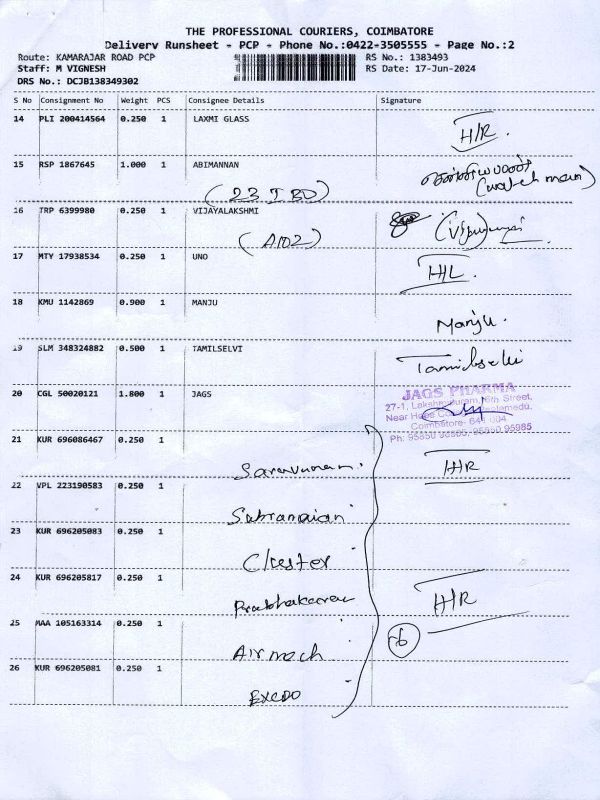 THE PROFESSIONAL COURIERS, COIMBATORE
Delivery Runsheet - PCP - Phone No.:0422-3505555 - Page No.:2
Route: KAMARAJAR ROAD PCP
RS No.: 1383493
Staff: M VIGNESH
RS Date: 17-Jun-2024
DRS No.: DCJB138349302
S No Consignment No Weight PCS Consignee Details Signature
14 PLI 200414564 0.250 1 LAXMI GLASS
H/R.
15 RSP 1867645 1.000 1 ABIMANNAN
(watch man)
16 TRP 6399980 0.250 1 VIJAYALAKSHMI
(A102)
17 MTY 17938534 0.250 1 UNO
H/L.
18 KMU 1142869 0.900 1 MANJU
Manju.
19 SLM 348324882 0.500 1 TAMILSELVI
Tamilselvi
20 CGL 50020121 1.800 1 JAGS
JAGS PHARMA
27-1, Lakshmipuram, 6th Street,
Near Coimbatore- 641 004
21 KUR 696086467 0.250 1
Saravanan.
H/R
22 VPL 223190583 0.250 1
Subramaian
23 KUR 696205083 0.250 1
Cluster
24 KUR 696205817 0.250 1
Prabhakaran
H/R
25 MAA 105163314 0.250 1
Airmech
6
26 KUR 696205081 0.250 1
EXEDO